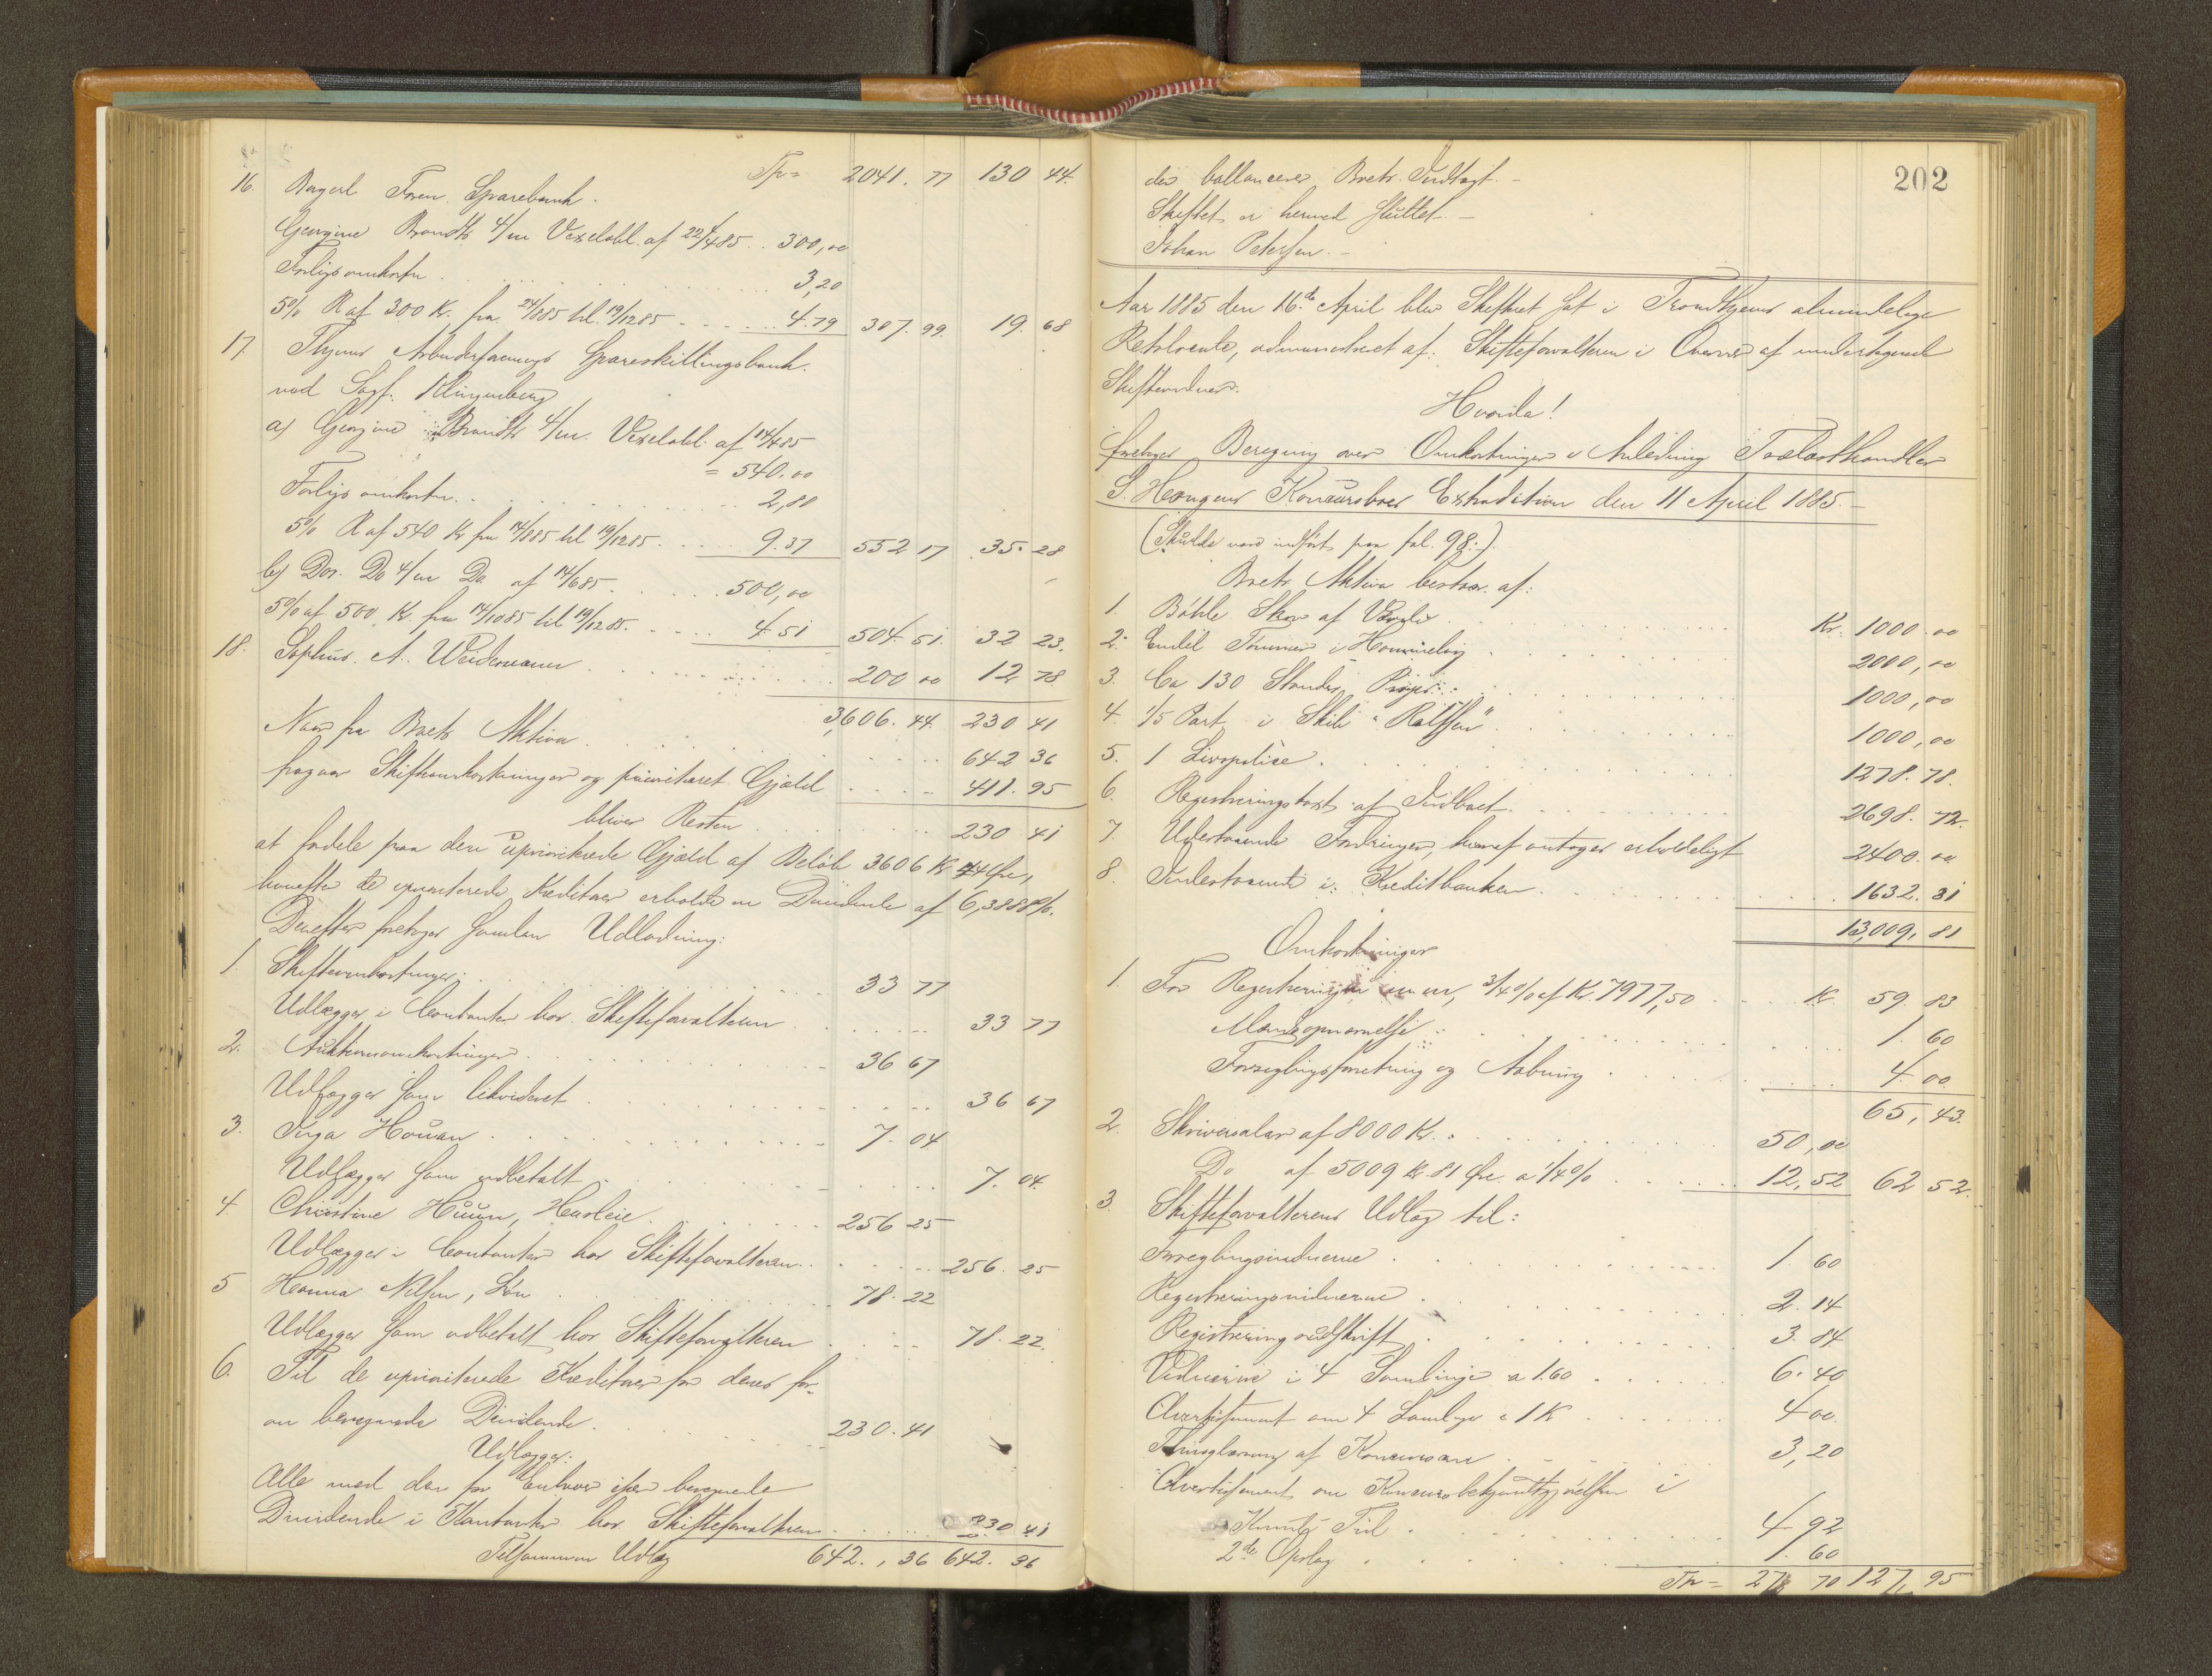 Tp = 2041. 77 130 44.
16. Sparebank.
Georgine Brandts 4/m Vexelobl. af 22/4 85 . . 300,00
Forligsomkostn. 3,20
5% R af 300 Kr. fra 24/8 85 til 19/12 85 4.79 307. 99. 19. 68
17. Thjems Arbeiderforenings Spareskillingsbank.
ved Sagf. Klingenberg
a) Georgine Brandts 4/m. Vexelobl. af 14/4 85
= 540.00
Forligsomkostn. 2,80
5% R af 540 Kr fra 14/8 85 til 19/12 85 9.37 552 17 35. 28
b) Do. Do 4/m Do af 14/6 85 500,00
5% af 500 Kr. fra 14/10 85 til 19/12 85. 4.51 504. 51. 32 23.
18. Sophus A. Weidemann 200 00 12 78
3,606. 44. 230 41
Naar fra Boets Aktiva 642 36
fragaar Skifteomkostninger og prioriteret Gjæld 411. 95
bliver Resten 230 41
at fordele paa den uprioriterede Gjæld af Beløb 3606 Kr 44 Øre,
hvorefter de uprioriterede Kreditorer erholde en Dividende af 6,3888%.
Derefter foretages saadan Udlodning:
1. Skifteomkostninger: 33 77
Udlægges i Contanter hos Skifteforvalteren 33 77
2. Auktionsomkostninger 36 67
Udlægges som likvideret 36 67
3. Inga Houan 7. 04.
Udlægges som udbetalt 7. 04.
4. Christine Huun, Husleie 256 25
Udlægges i Contanter hos Skifteforvalteren 256. 25
5 Hanna Nilsen, Løn 78. 22
Udlægges som udbetalt hos Skifteforvalteren 78. 22.
6. Til de uprioriterede Kreditorer for deres for-
an beregnede Dividende 230. 41
Udlægges:
Alle med den for Enhver især beregnede
Dividende i Kontanter hos Skifteforvalteren 230 41
Tilsammen Udlæg 642., 36 642. 36
202
der ballancerer Boets Indtægt. –
Skiftet er hermed sluttet. –
Johan Petersen. –
Aar 1885 den 16de April blev Skifteret sat i Trondhjems almindelige
Retslocale, administreret af: Skifteforvalteren i Overvær af undertegnede
Skiftevidner.
Hvorda!
foretoges Beregning over Omkostninger i Anledning Trælasthandler
S. Haugens Konkursboes Extradition den 11 April 1885. –
(Skulde være indført paa fol. 98.)
Boets Aktiva bestaar af:
1. Bøhle Skov af Værdi Kr. 1000.00
2. Endel Tømmer i Hommelvig 2000,00
3. Ca 130 Stander Props 1000,00
4. 1/5 Part i Skib "Rolfsen" 1000,00
5. 1 Livspolice 1278. 78.
6. Registreringstaxt af Indboet 2698. 72.
7. Udestaaende Fordringer, hvoraf antages erholdeligt 2400. 00
8. Indestaaende i Kreditbanken 1632. 31
13,009, 81
Omkostninger
1. For Registreringen m m, 3/4% af Kr. 7977,50 Kr. 59. 83
Mændsopnævnelse 1. 60
Forseglingsforretning og Aabning 4. 00
65, 43.
2. Skriversalær af 8000 Kr. 50,00
Do af 5009 Kr. 81 Øre a 1/4% 12,52 62 52.
3. Skifteforvalterens Udlæg til:
Forseglingsvidnerne 1. 60
Registreringsvidnerne 2. 14
Registreringsudskrift 3. 84
Vidnerne i 4 Samlinger a 1.60 6. 40
Avertissement om 4 Samlinger a 1 Kr 4 00.
Thinglæsning af Konkursen 3, 20
Avertissement om Konkursbekjendtgjørelsen i
Kunds Tid 4 92
2de Opslag 1. 60
Tr = 27, 70 127, 95